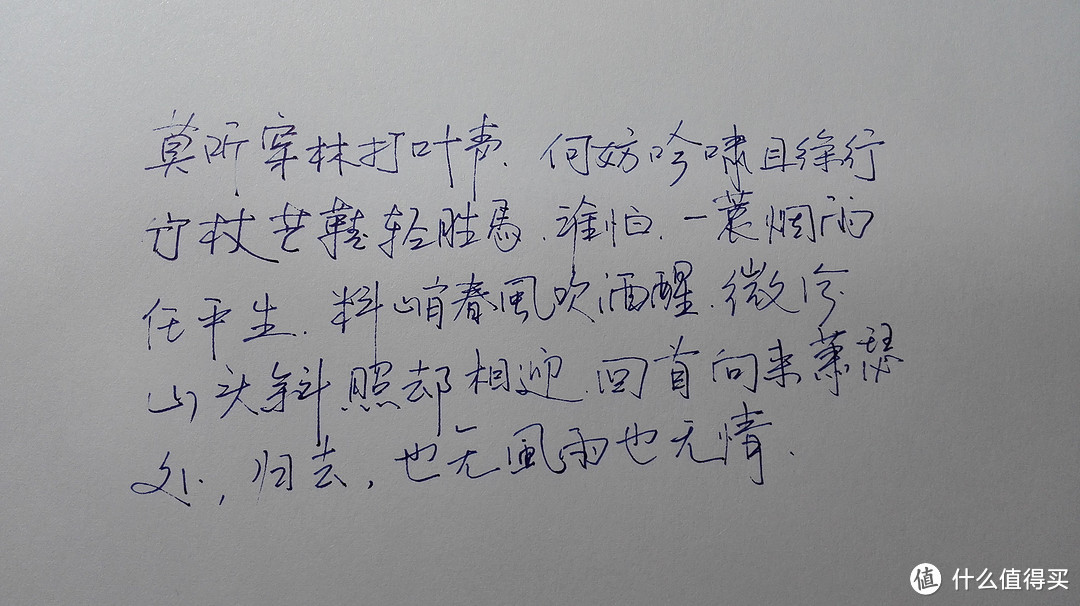 莫听穿林打叶声.何妨吟啸且徐行
竹杖芒鞋轻胜馬.谁怕.一蓑烟雨
任平生.料峭春風吹酒醒.微冷
山头斜照却相迎.回首向来萧瑟
处.,归去,也无風雨也无情.
值 什么值得买